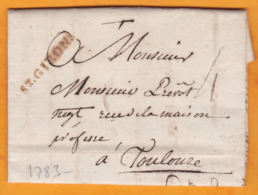 ST.GIRONS
A Monsieur
Monsieur Prévôt
negt rue de la maison
professe
à Toulouze
1783-